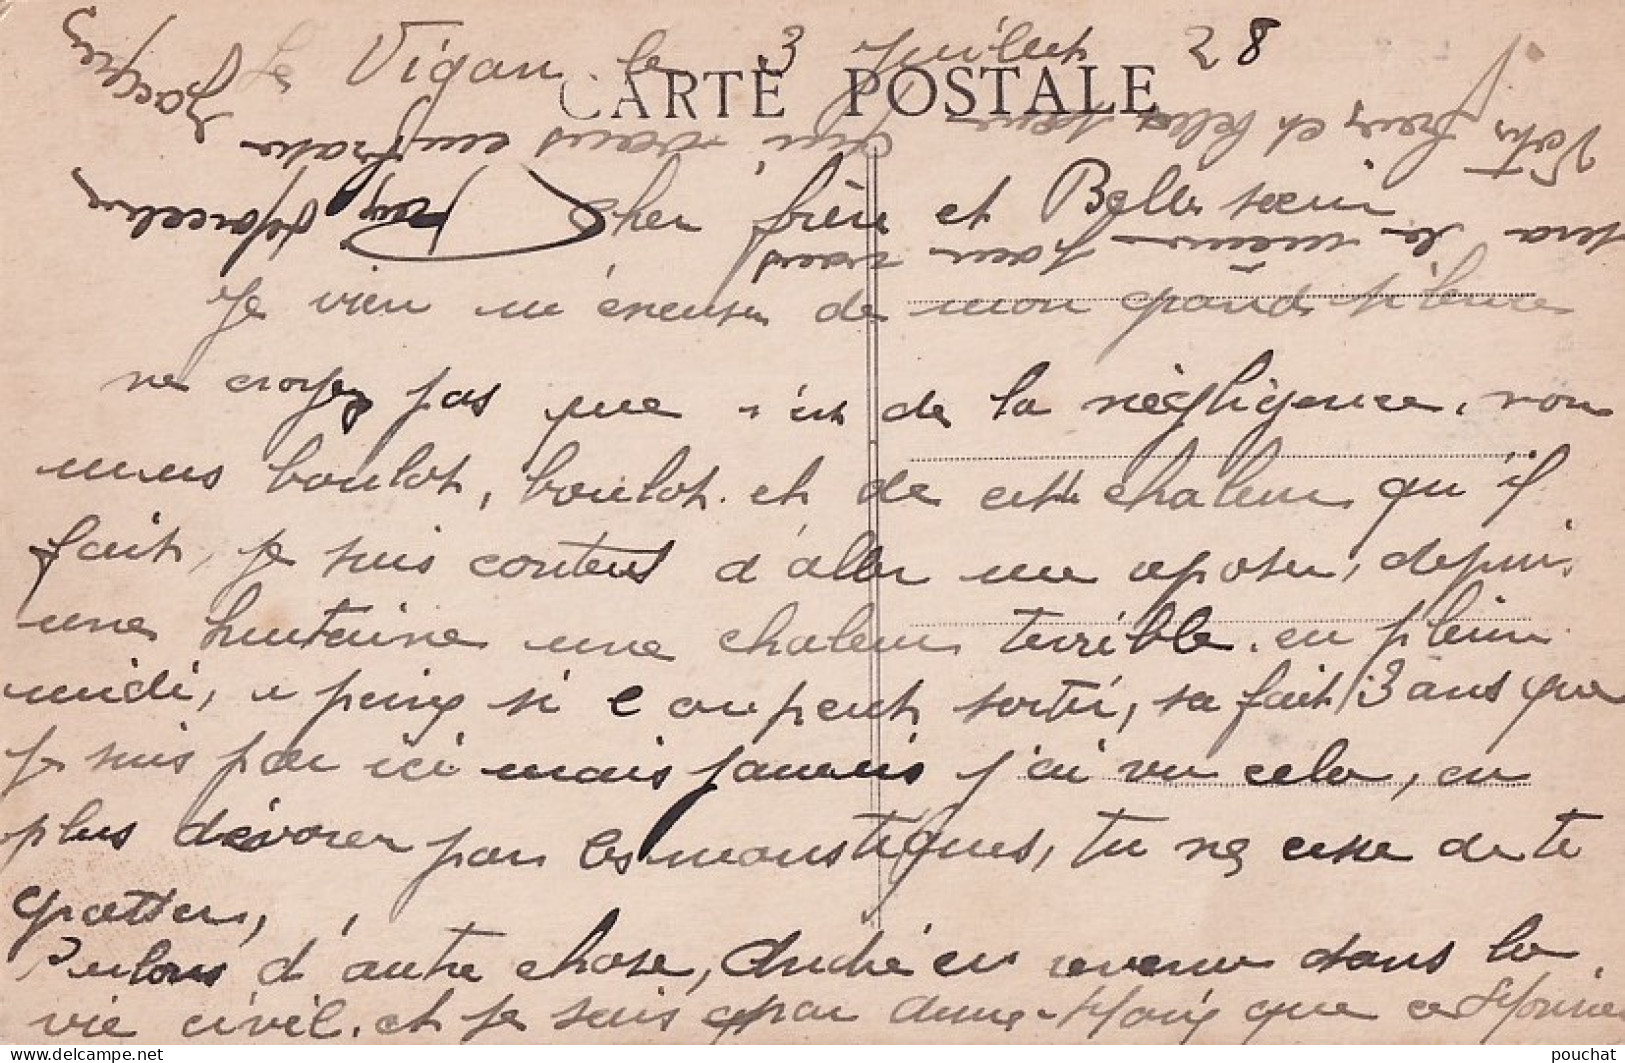 Le Vigan le 3 Juillet 28
CARTE POSTALE
Cher frère et Belle soeur
Je vien m'excuser de mon grand silence
ne croyez pas que s'est de la nègligence, nous
boulot, boulot. et de cette chaleur qu'il
fait, je suis content d'aller me reposer, depuis
une huitaine une chaleur terrible. en plein
midi, a peine si l'on peut sorti, sa fait 3 ans que
je suis par ici mais jamais j'ai vu cela, en
plus dèvorer par les moustiques, tu ne cesse de te
gratter,
Parlons d'autre chose, André es revenu dans la
vie civil. et je sais par que ce
Votre frère et belle soeur
qui vous embrasse
sera le même pour vous
Marceline
Jacques
pouchat
www.delcampe.net